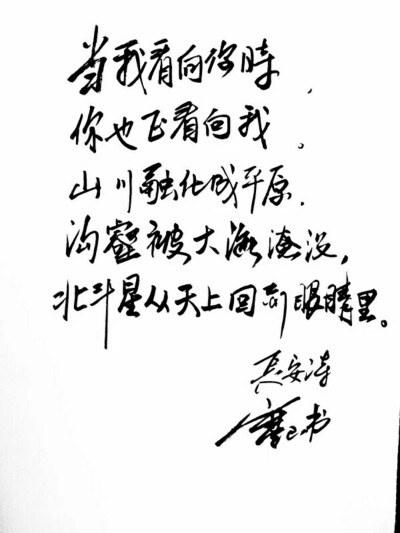 当我看向你時,
你也正看向我。
山川融化成平原.
沟壑被大海淹没,
北斗星从天上回到眼睛里。
长安涛
书